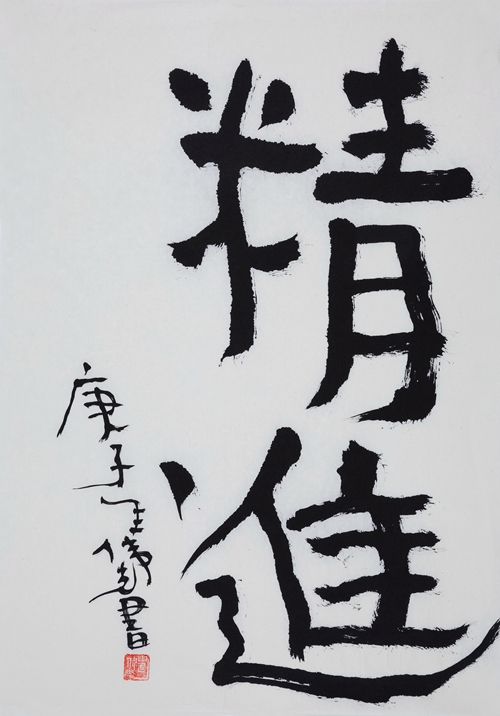 精進
庚子年書